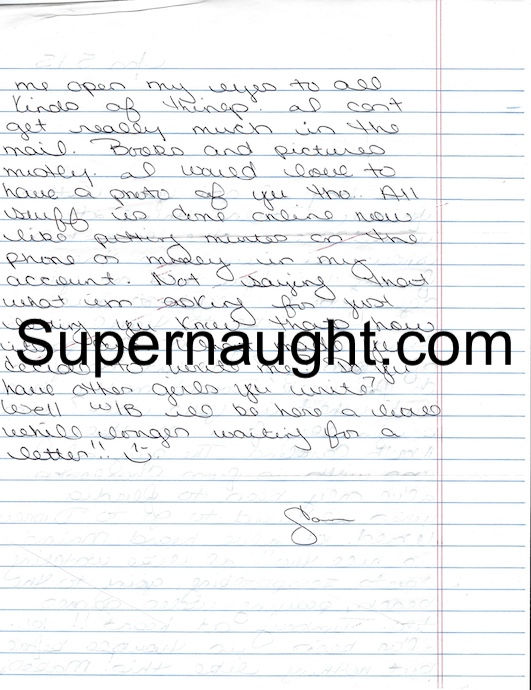 me open my eyes to all
kinds of things. I can't
get really much in the
mail. Books and pictures
mostly. I would love to
have a photo of you tho. All
stuff is done online now
like putting minutes on the
phone or money in my
account. Not saying that
what im asking for just
you know thats how
Supernaught.com
decided to write me. Do you
have other girls you write?
Well W/B ill be here a little
while longer waiting for a
letter!!
Sam